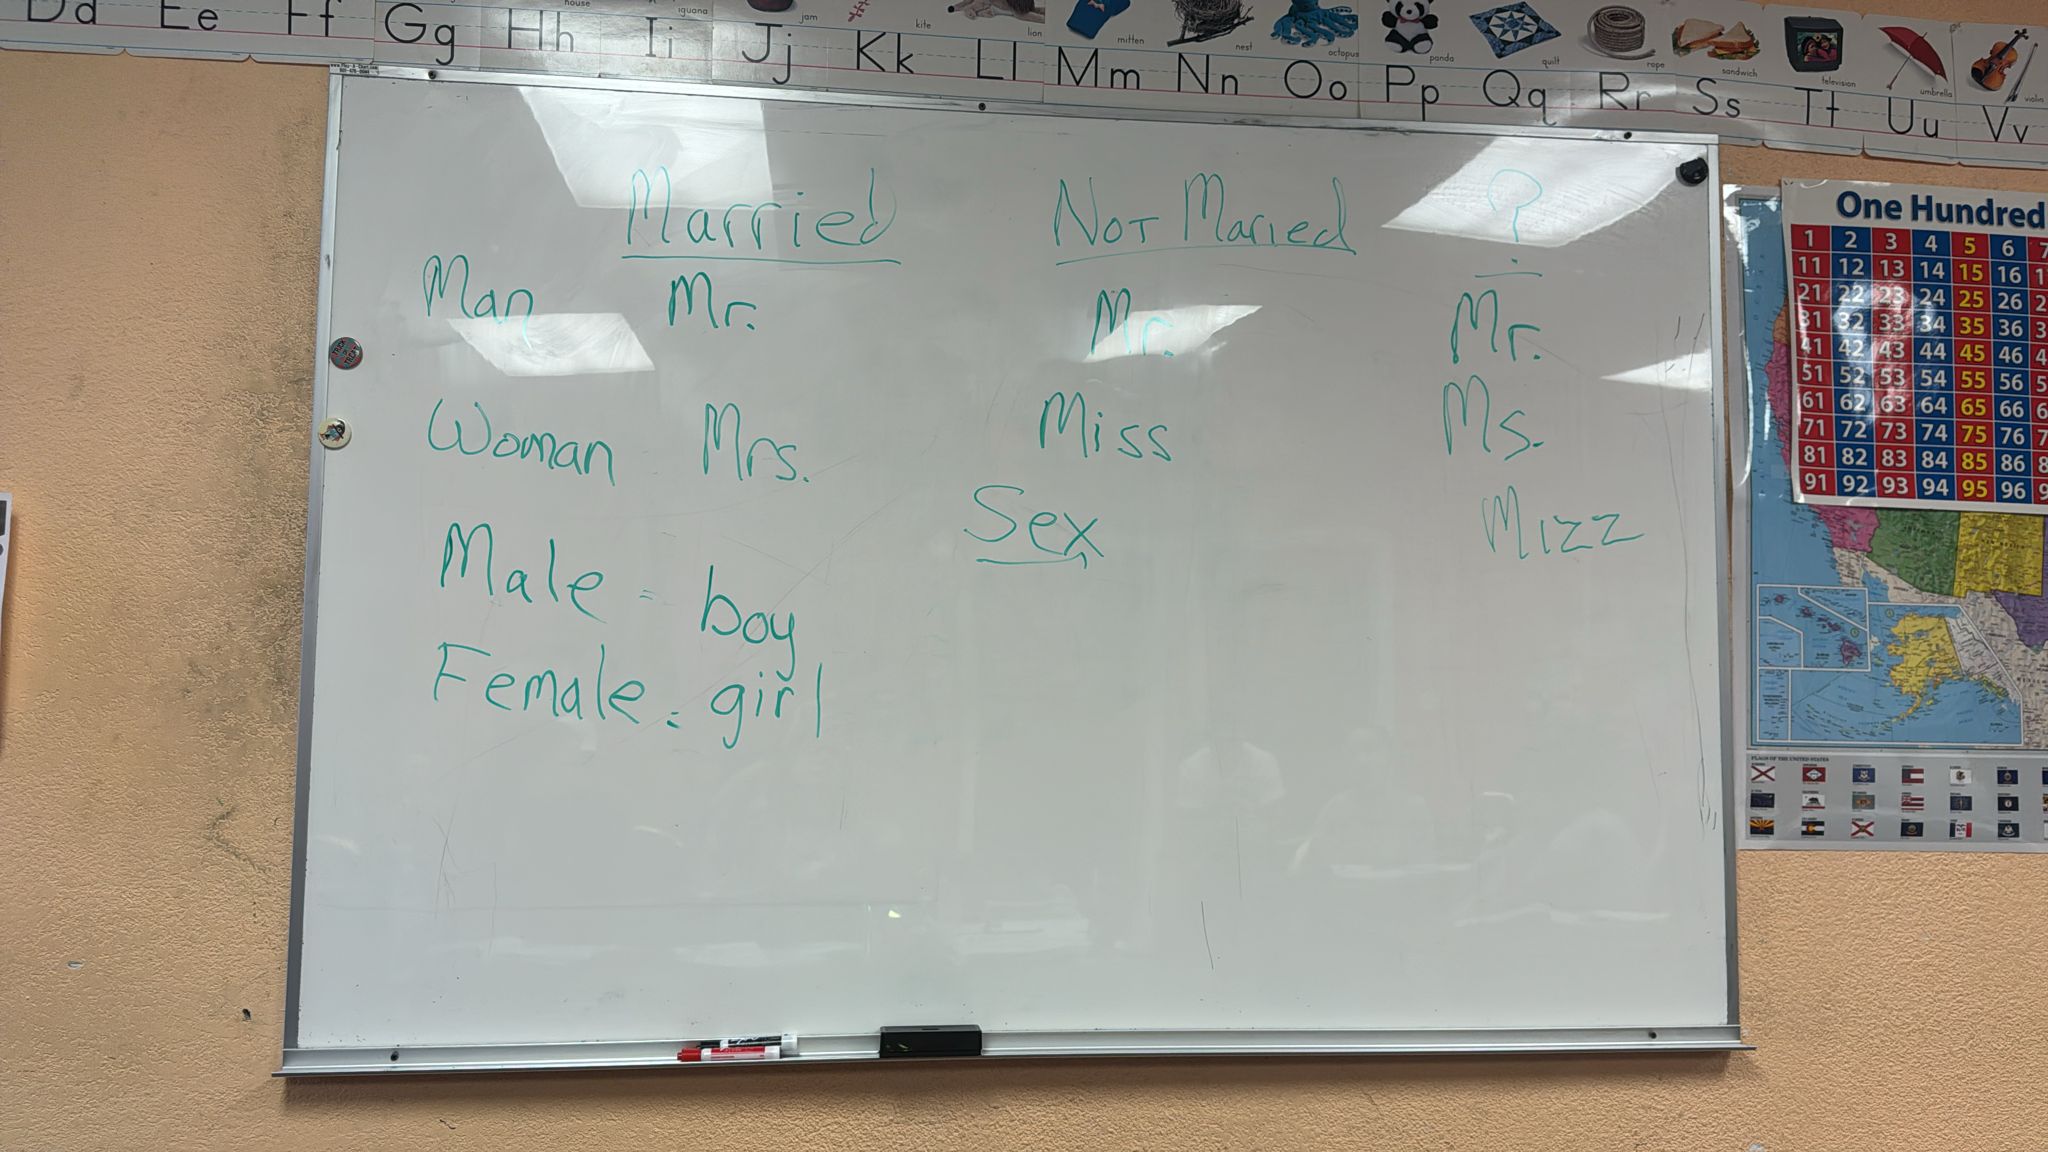 Dd Ee Ff Gg Hh Ii Jj Kk Ll Mm Nn Oo Pp Qq Rr Ss Tt Uu Vv
house iguana jam kite lion mitten nest octopus panda quilt rope sandwich television umbrella violin
Married Not Maried ?
Man Mr. Mr. Mr.
Woman Mrs. Miss Ms.
Sex Mizz
Male = boy
Female = girl
One Hundred
1 2 3 4 5 6 7
11 12 13 14 15 16
21 22 23 24 25 26
31 32 33 34 35 36
41 42 43 44 45 46
51 52 53 54 55 56
61 62 63 64 65 66
71 72 73 74 75 76
81 82 83 84 85 86
91 92 93 94 95 96
FLAGS OF THE UNITED STATES
TRICK OR TREAT